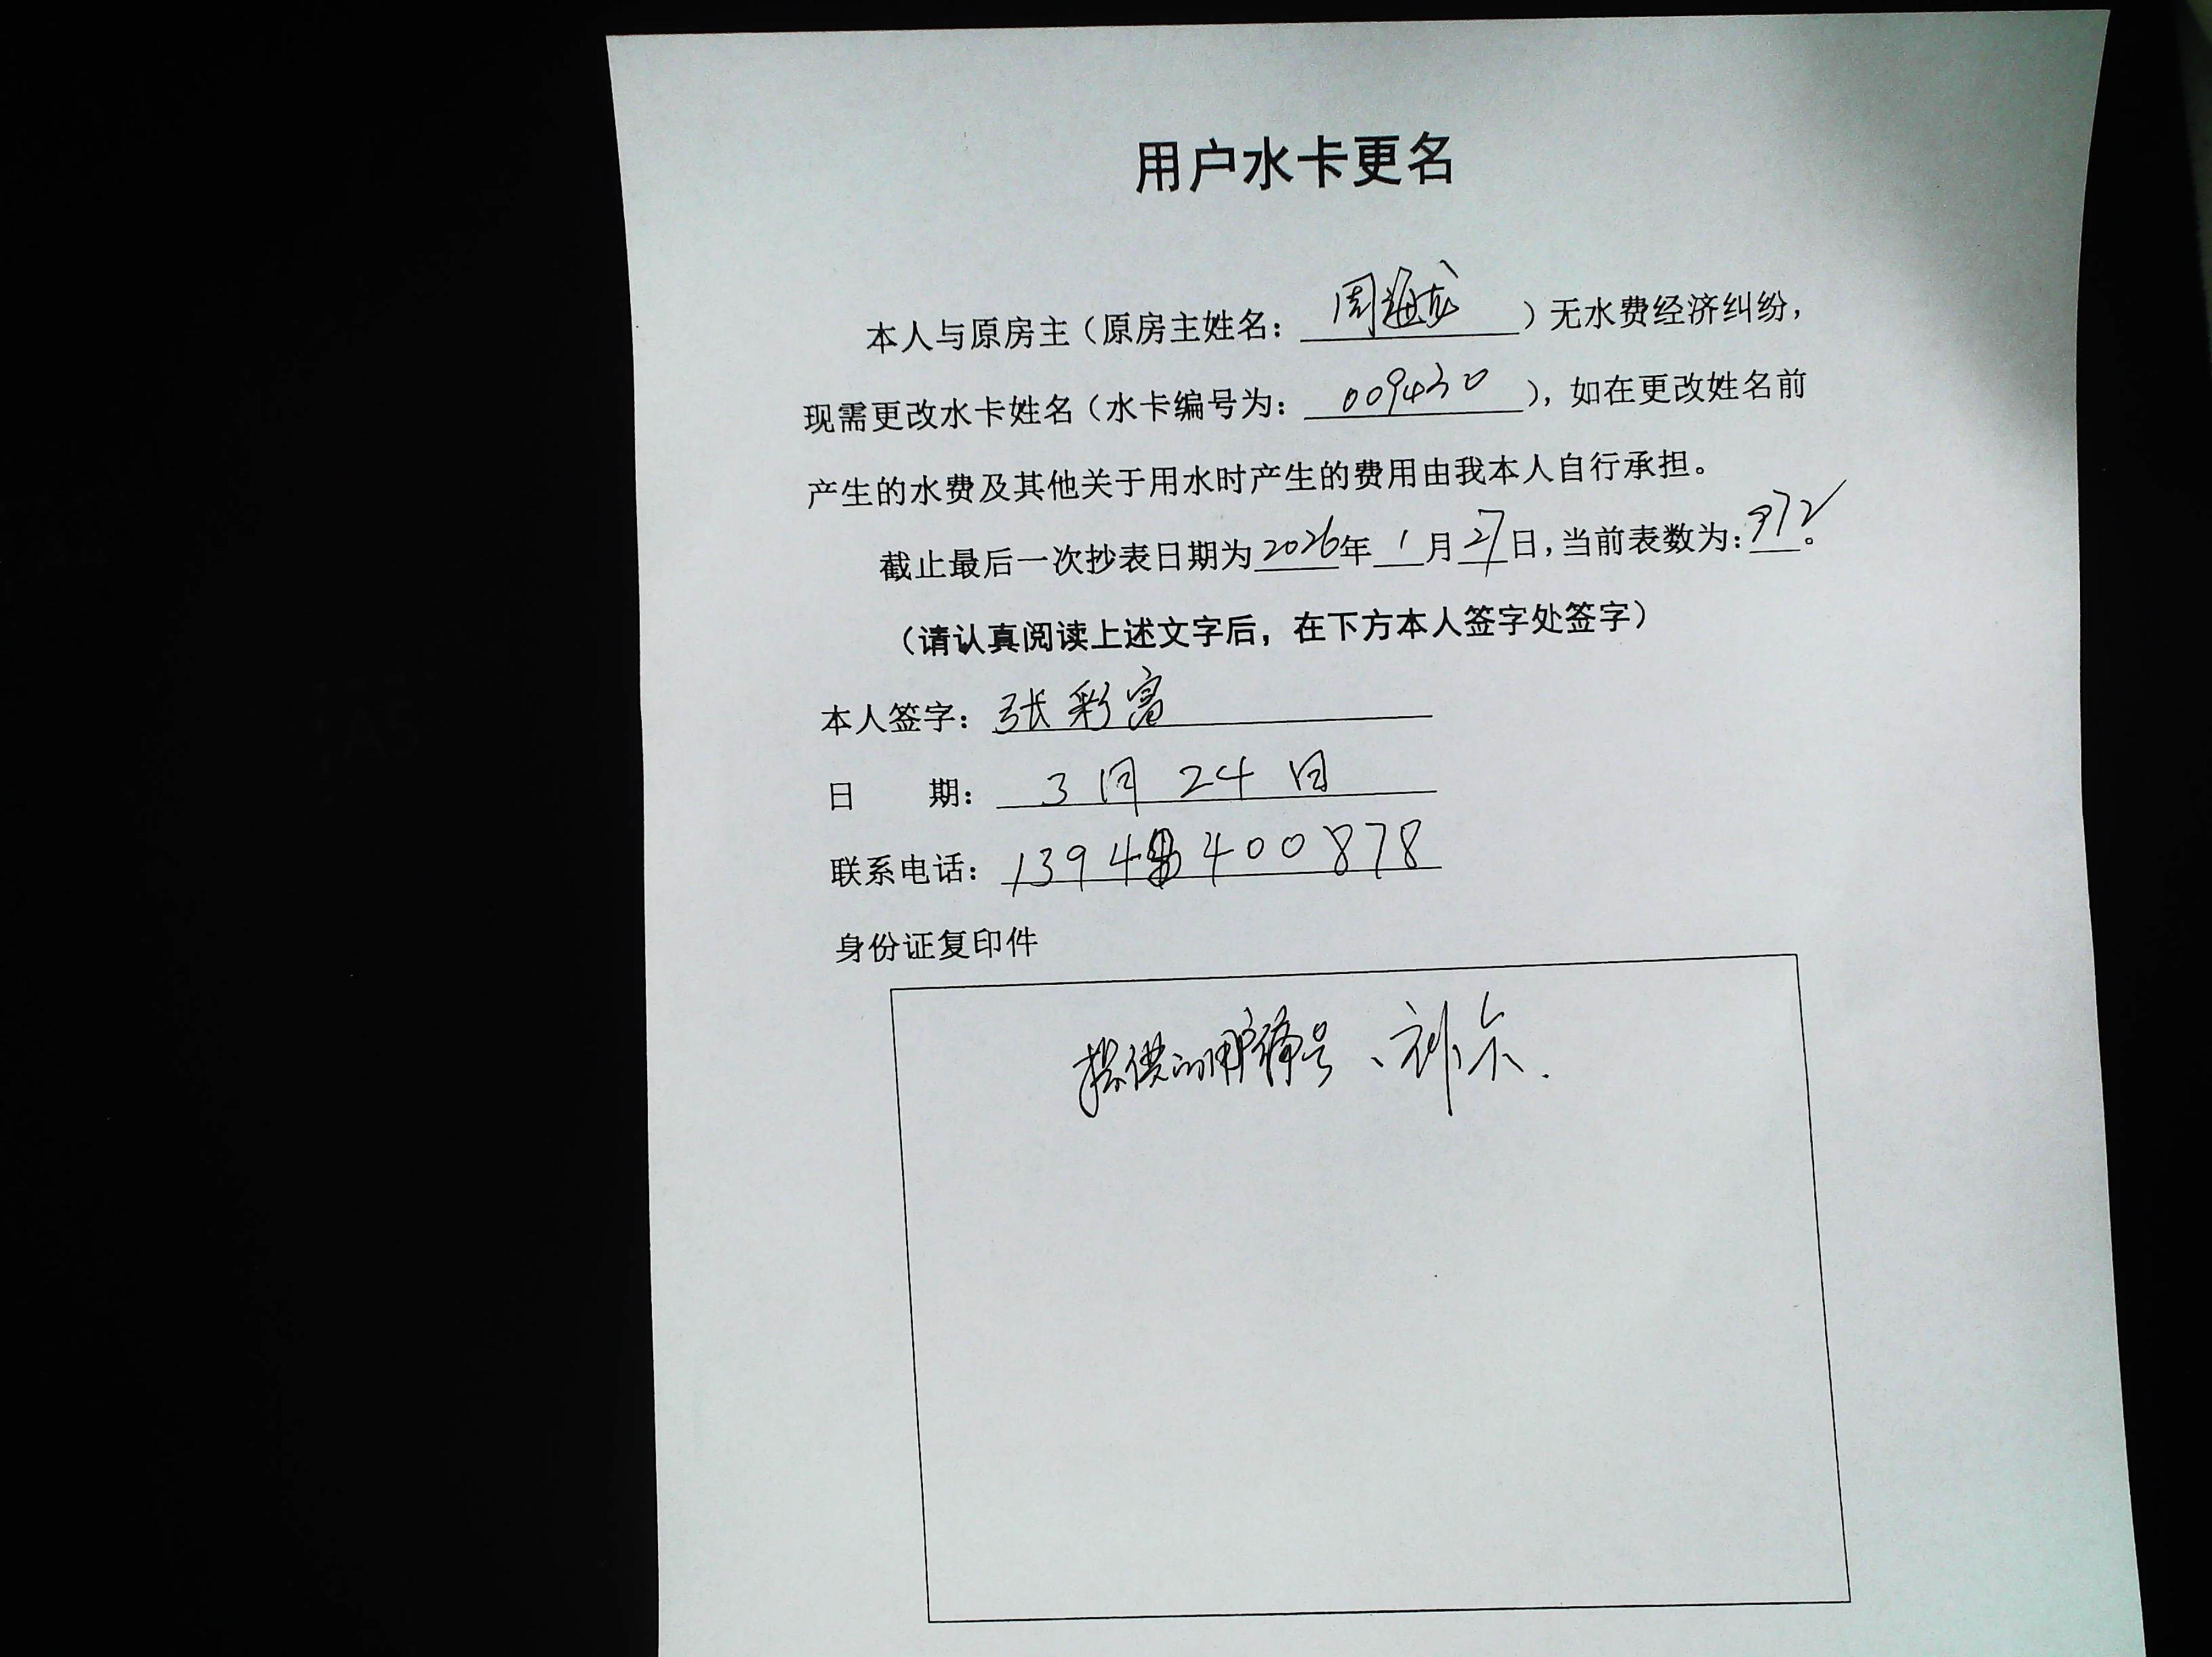 用户水卡更名
本人与原房主（原房主姓名：周海龙）无水费经济纠纷，
现需更改水卡姓名（水卡编号为：009430），如在更改姓名前
产生的水费及其他关于用水时产生的费用由我本人自行承担。
截止最后一次抄表日期为2026年1月27日，当前表数为：972。
（请认真阅读上述文字后，在下方本人签字处签字）
本人签字：张彩富
日 期：3月24日
联系电话：1394 400878
身份证复印件
提供的用户编号、